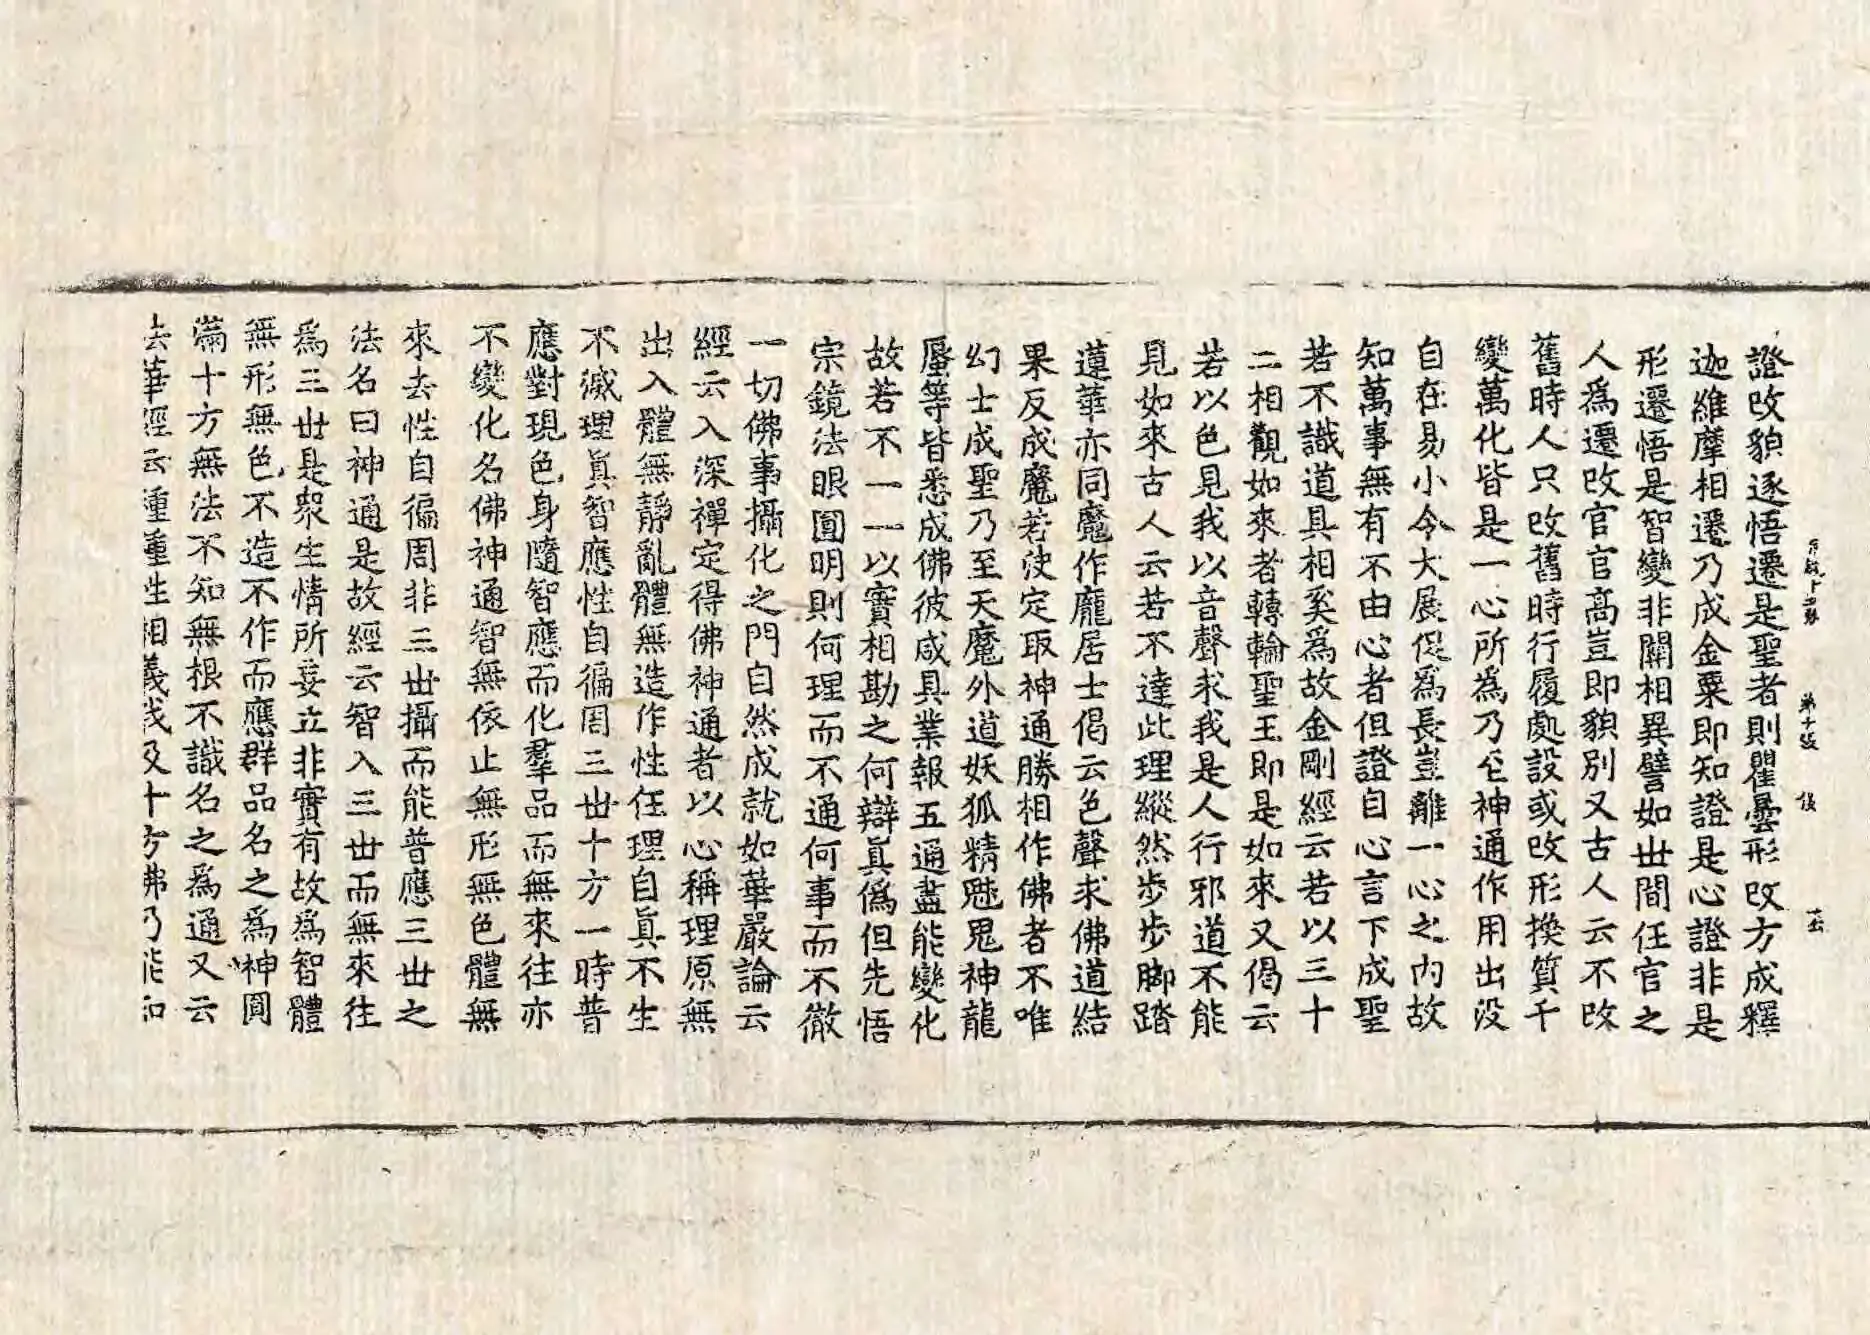 證改貌逐悟遷是聖者則瞿曇形改方成釋
迦維摩相遷乃成金粟即知證是心證非是
形遷悟是智變非關相異譬如丗間任官之
人爲遷改官官髙豈即貌別又古人云不改
舊時人只改舊時行履處設或改形換質千
變萬化皆是一心所爲乃至神通作用出没
自在易小令大展促爲長豈離一心之內故
知萬事無有不由心者但證自心言下成聖
若不識道具相奚爲故金剛經云若以三十
二相觀如來者轉輪聖王即是如來又偈云
若以色見我以音聲求我是人行邪道不能
見如來古人云若不達此理縱然步步脚踏
蓮華亦同魔作龐居士偈云色聲求佛道結
果反成魔若使定取神通勝相作佛者不唯
幻士成聖乃至天魔外道妖狐精魅鬼神龍
蜃等皆悉成佛彼咸具業報五通盡能變化
故若不一一以實相勘之何辯真僞但先悟
宗鏡法眼圓明則何理而不通何事而不徹
一切佛事攝化之門自然成就如華嚴論云
經云入深禪定得佛神通者以心稱理原無
出入體無靜亂體無造作性任理自真不生
不滅理真智應性自徧周三丗十方一時普
應對現色身隨智應而化羣品而無來往亦
不變化名佛神通智無依止無形無色體無
來去性自徧周非三丗攝而能普應三丗之
法名曰神通是故經云智入三丗而無來往
爲三丗是衆生情所妄立非實有故爲智體
無形無色不造不作而應群品名之爲神圓
滿十方無法不知無根不識名之爲通又云
法華經云種種性相義我及十方佛乃能知